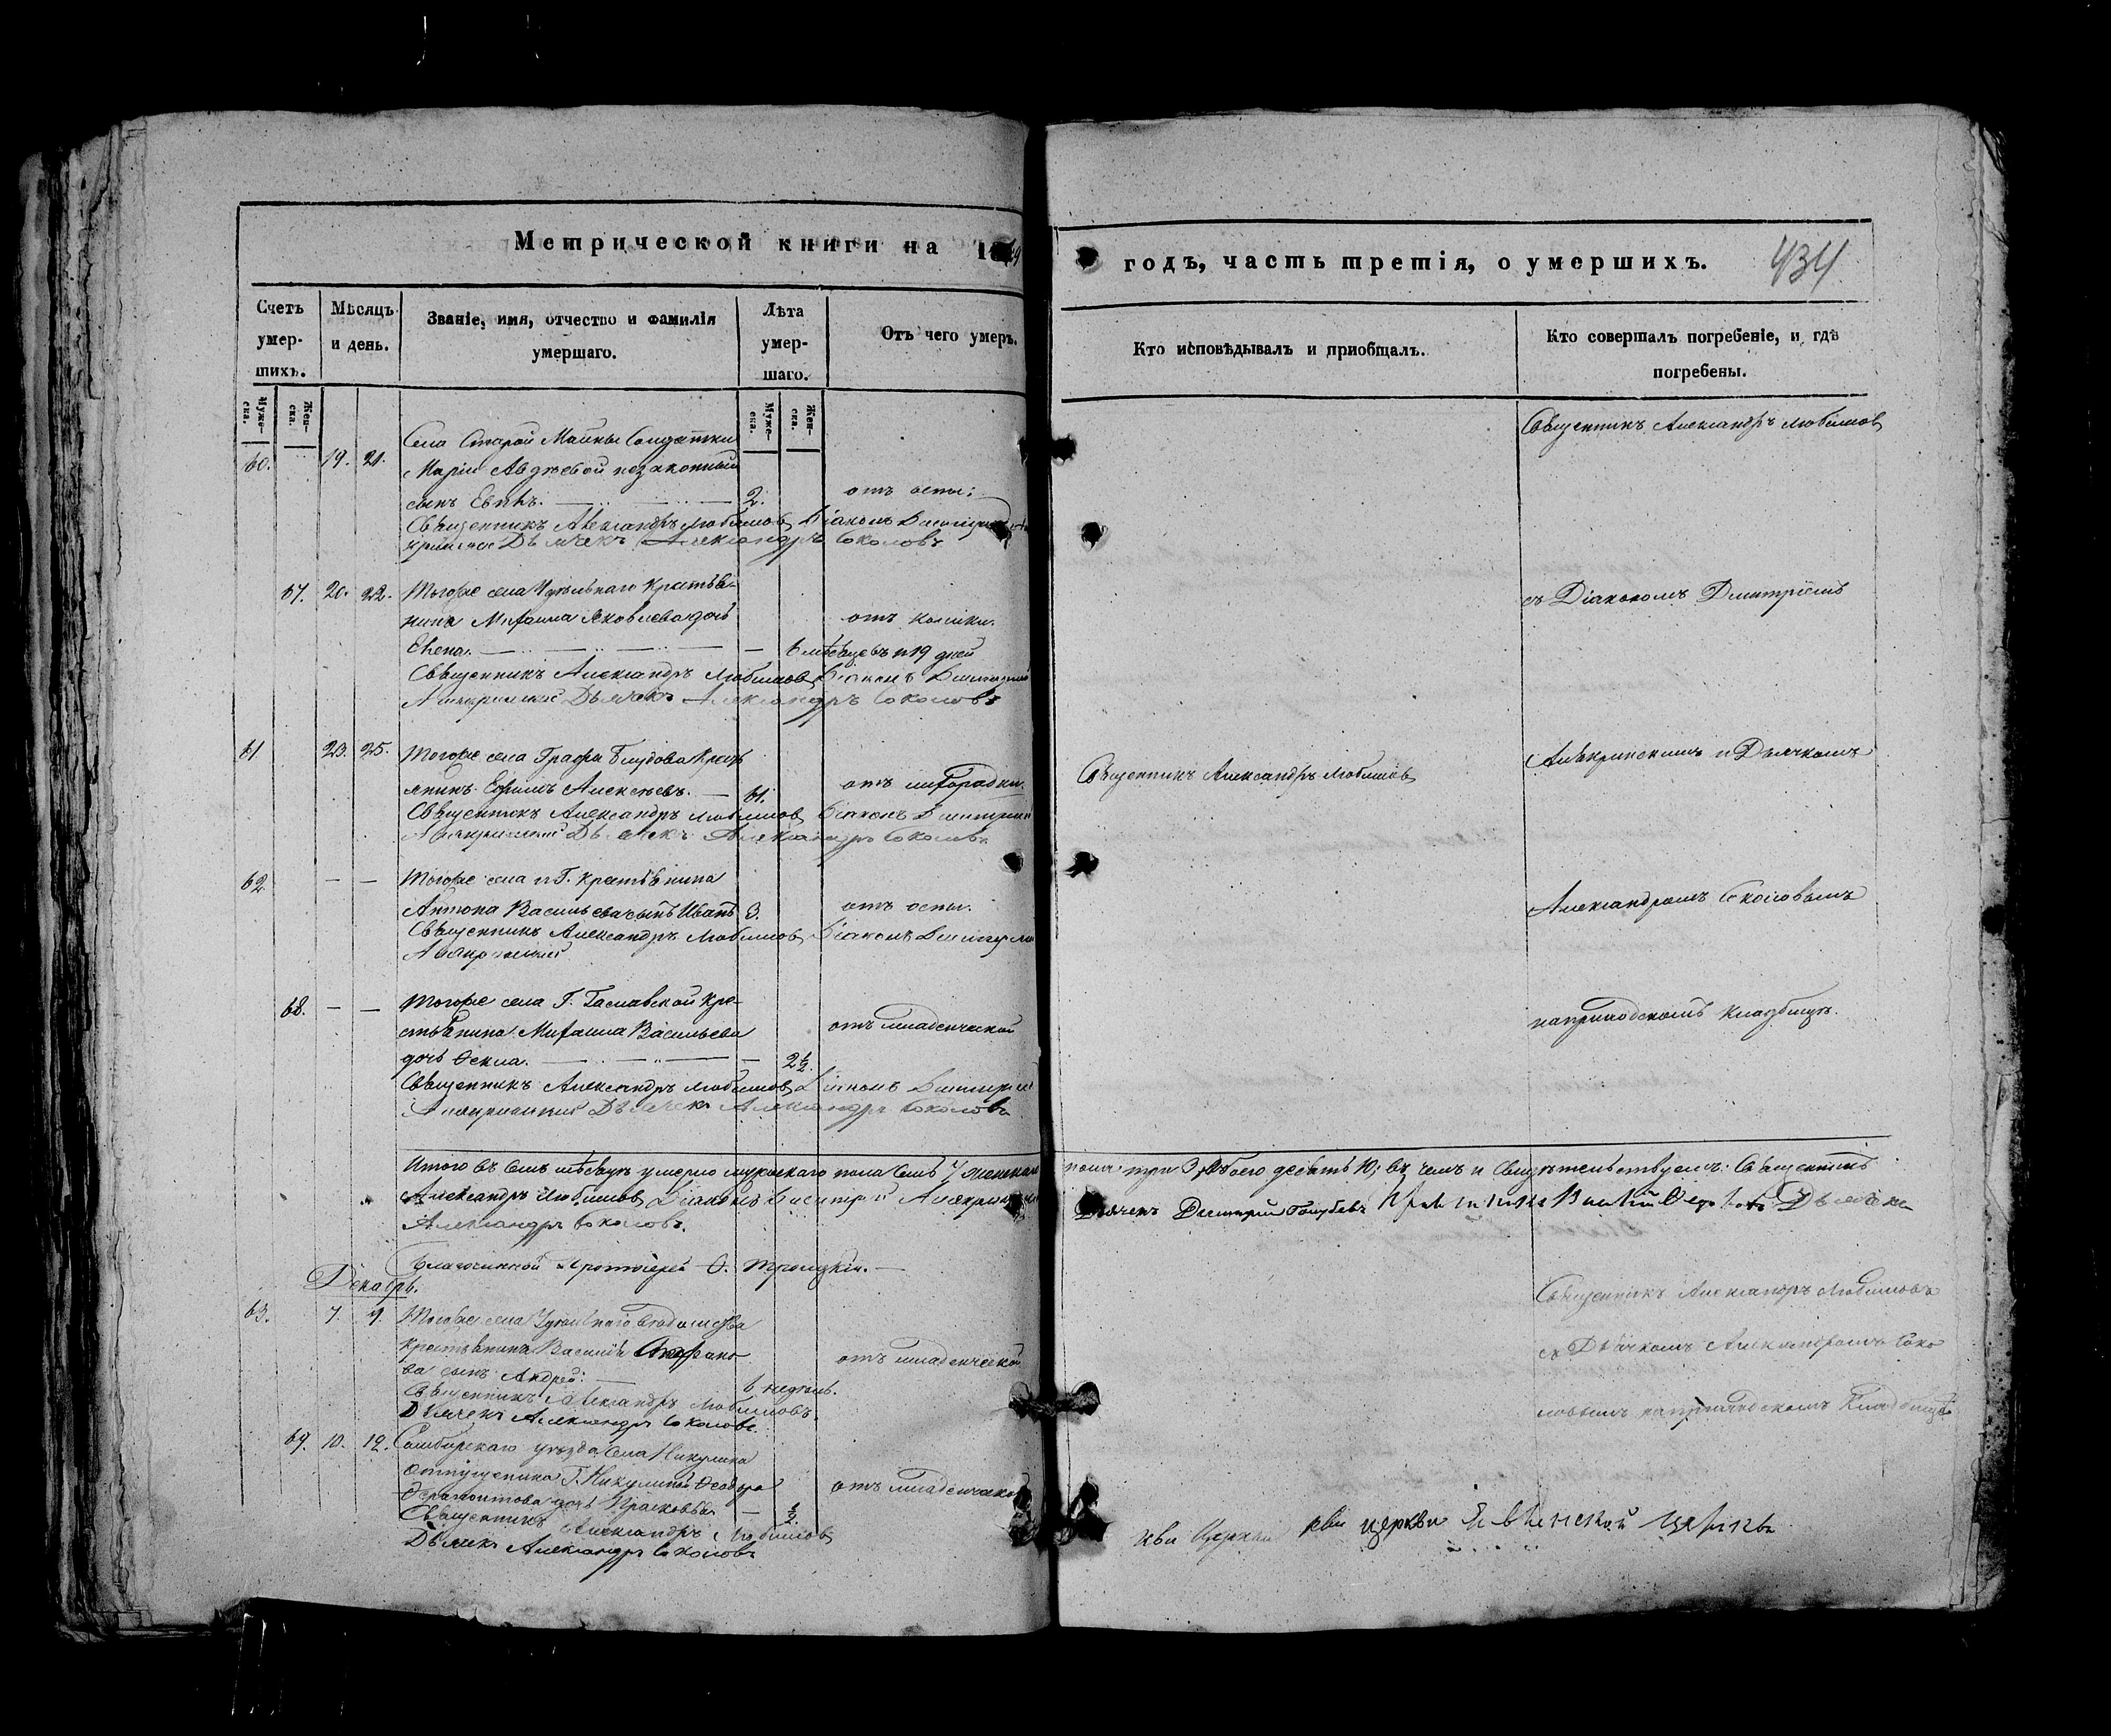 Метрической книги на 18
годъ, часть третія, о умершихъ.
434
Счетъ умер-шихъ.
Мѣсяцъ и день.
Званіе, имя, отчество и фамилія умершаго.
Лѣта умер-шаго.
Отъ чего умеръ.
Кто исповѣдывалъ и пріобщалъ.
Кто совершалъ погребеніе, и гдѣ погребены.
Муже-ска.
Жен-ска.
Муже-ска.
Жен-ска.
Села Старой Майны Солдатки
60. 19. 21. Маріи Авдѣевой незаконный
сынъ 2. отъ оспы;
Священникъ Александръ Любимовъ Діаконъ
Дьячекъ Александръ Соколовъ
Священникъ Александръ Любимовъ
67. 20. 22. Тогоже села Удѣльнаго Крестья-
нина Михаила Яковлева дочь отъ
Елена. 6 мѣсяцевъ и 19 дней
Священникъ Александръ Любимовъ Діаконъ Димитрій
Дьячекъ Александръ Соколовъ
съ Діакономъ Дмитріемъ
61 23. 25. Тогоже села Графа Блудова Кресть
янинъ Ефимъ Алексѣевъ. 61. отъ лихорадки.
Священникъ Александръ Любимовъ Діаконъ Димитрій
Дьячекъ Александръ Соколовъ
Священникъ Александръ Любимовъ
и Дьячкомъ
62. — — Тогоже села и Г. Крестьянина
Антона Васильева сынъ Иванъ 3. отъ оспы.
Священникъ Александръ Любимовъ Діаконъ Димитрій
Александромъ Соколовымъ
68. — — Тогоже села Г. Кре-
стьянина Михаила Васильева отъ младенческой
дочь Ѳекла. 2½.
Священникъ Александръ Любимовъ Діаконъ Димитрій
Дьячекъ Александръ Соколовъ
на приходскомъ кладбищѣ.
Итого въ семъ мѣсяцѣ умерло мужескаго пола семь 7 женскаго
пола три 3, обоего десять 10; въ чемъ и свидѣтельствуемъ: Священникъ
Александръ Любимовъ Діаконъ Димитрій
Дьячекъ Димитрій Голубевъ
Александръ Соколовъ.
Благочинной Протоіерей Ѳ. Троицкій.
Декабрь.
63. 7. 9. Тогоже села Удѣльнаго вѣдомства
Крестьянина Василія Стефано- отъ младенческой
ва сынъ Андрей: 6 недѣль.
Священникъ Александръ Любимовъ.
Дьячекъ Александръ Соколовъ
Священникъ Александръ Любимовъ
съ Дьячкомъ Александромъ Соко
ловымъ на приходскомъ Кладбищѣ
69. 10. 12. Симбирскаго уѣзда села Никулина
Отпущеника Г. Никулиной Ѳеодора отъ младенческой
дочь Прасковья — ½.
Священникъ Александръ Любимовъ
Дьячекъ Александръ Соколовъ
церкви